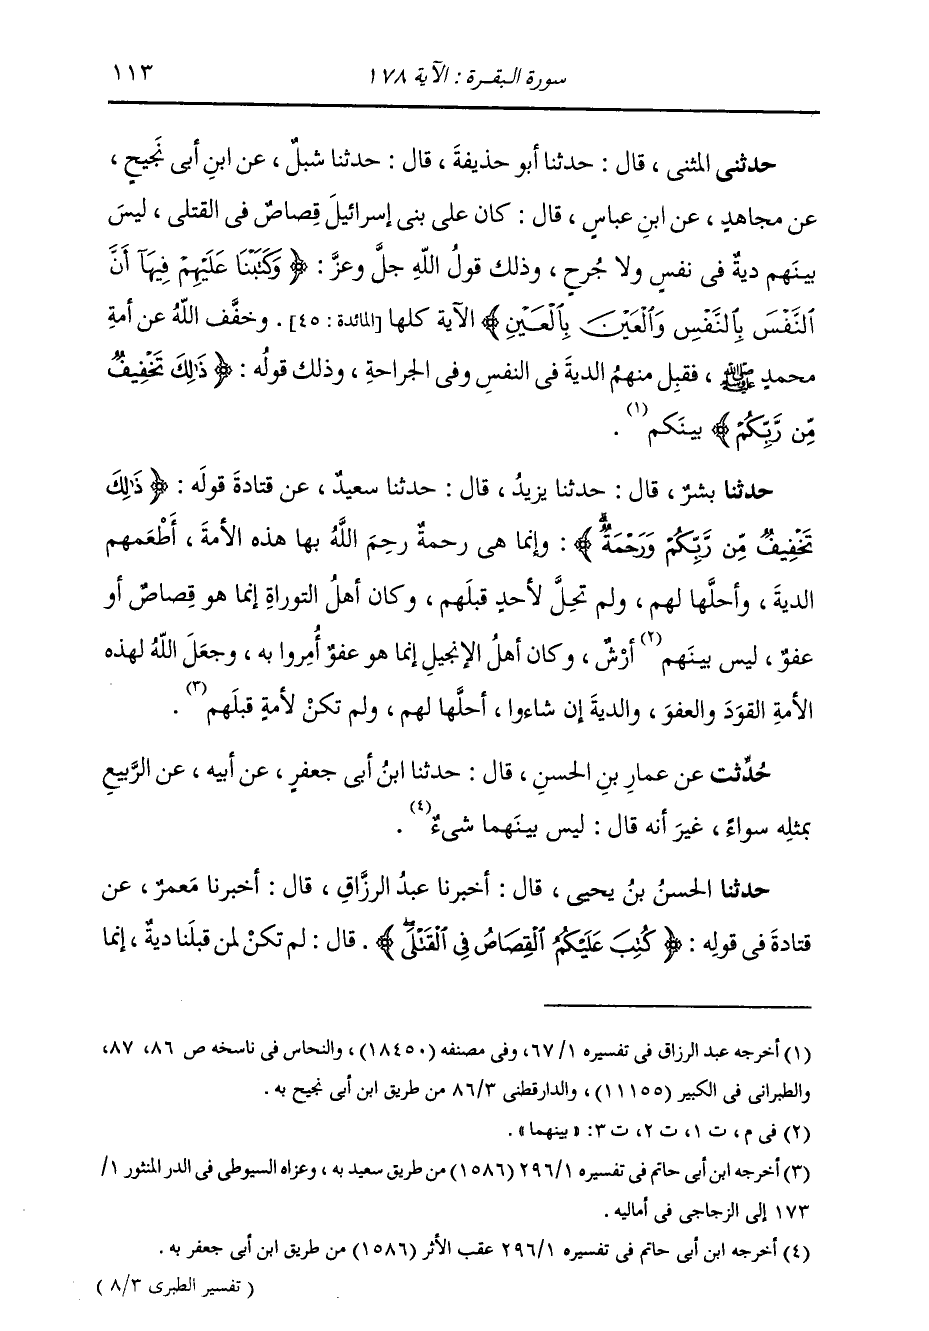 سورة البقرة : الآية ١٧٨
١١٣
حدثنى المثنى ، قال : حدثنا أبو حذيفةَ ، قال : حدثنا شبلٌ ، عن ابنِ أبى نَجيحٍ ،
عن مجاهدٍ ، عن ابنِ عباسٍ ، قال : كان على بنى إسرائيلَ قِصاصٌ فى القتلى ، ليسَ
بينَهم ديةٌ فى نفسٍ ولا جُرحٍ ، وذلك قولُ اللهِ جلَّ وعزَّ : ﴿ وَكَتَبْنَا عَلَيْهِمْ فِيهَآ أَنَّ
ٱلنَّفْسَ بِٱلنَّفْسِ وَٱلْعَيْنَ بِٱلْعَيْنِ ﴾ الآية كلها [المائدة : ٤٥] . وخفَّف اللهُ عن أمةِ
محمدٍ ﷺ ، فقبِل منهمُ الديةَ فى النفسِ وفى الجراحةِ ، وذلك قولُه : ﴿ ذَٰلِكَ تَخْفِيفٌ
مِّن رَّبِّكُمْ ﴾ بينَكم(١) .
حدثنا بشرٌ ، قال : حدثنا يزيدُ ، قال : حدثنا سعيدٌ ، عن قتادةَ قولَه : ﴿ ذَٰلِكَ
تَخْفِيفٌ مِّن رَّبِّكُمْ وَرَحْمَةٌ ۗ ﴾ : وإنما هى رحمةٌ رحِمَ اللَّهُ بها هذه الأمةَ ، أَطْعَمهم
الديةَ ، وأحلَّها لهم ، ولم تحِلَّ لأحدٍ قبلَهم ، وكان أهلُ التوراةِ إنما هو قِصاصٌ أو
عفوٌ ، ليس بينَهم(٢) أرْشٌ ، وكان أهلُ الإنجيلِ إنما هو عفوٌ أُمِروا به ، وجعَلَ اللهُ لهذه
الأمةِ القوَدَ والعفوَ ، والديةَ إن شاءوا ، أحلَّها لهم ، ولم تكنْ لأمةٍ قبلَهم(٣) .
حُدِّثت عن عمارِ بنِ الحسنِ ، قال : حدثنا ابنُ أبى جعفرٍ ، عن أبيه ، عن الرَّبيعِ
بمثلِه سواءً ، غيرَ أنه قال : ليس بينَهما شىءٌ(٤) .
حدثنا الحسنُ بنُ يحيى ، قال : أخبرنا عبدُ الرزَّاقِ ، قال : أخبرنا مَعمرٌ ، عن
قتادةَ فى قولِه : ﴿ كُتِبَ عَلَيْكُمُ ٱلْقِصَاصُ فِى ٱلْقَتْلَى ۖ ﴾ . قال : لم تكنْ لمن قبلَنا ديةٌ ، إنما
(١) أخرجه عبد الرزاق فى تفسيره ١/ ٦٧، وفى مصنفه (١٨٤٥٠) ، والنحاس فى ناسخه ص ٨٦، ٨٧،
والطبرانى فى الكبير (١١١٥٥) ، والدارقطنى ٣/ ٨٦ من طريق ابن أبى نجيح به .
(٢) فى م ، ت ١، ت ٢، ت ٣: « بينهما » .
(٣) أخرجه ابن أبى حاتم فى تفسيره ١/ ٢٩٦ (١٥٨٦) من طريق سعيد به ، وعزاه السيوطى فى الدر المنثور ١/
١٧٣ إلى الزجاجى فى أماليه .
(٤) أخرجه ابن أبى حاتم فى تفسيره ١/ ٢٩٦ عقب الأثر (١٥٨٦) من طريق ابن أبى جعفر به .
( تفسير الطبرى ٨/٣ )